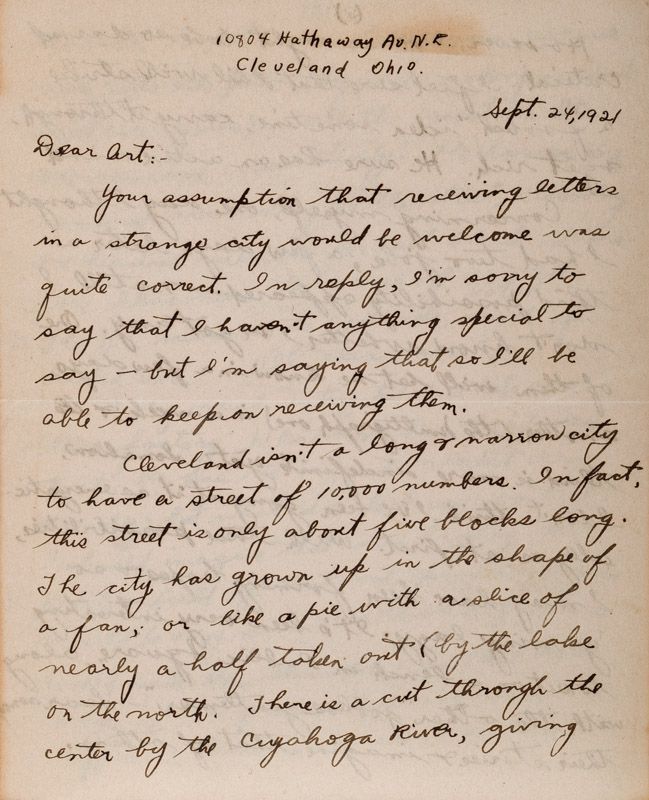 10804 Hathaway Av. N.E.
Cleveland Ohio.
Sept. 24, 1921
Dear Art:-
Your assumption that receiving letters
in a strange city would be welcome was
quite correct. In reply, I'm sorry to
say that I haven't anything special to
say – but I'm saying that so I'll be
able to keep on receiving them.
Cleveland isn't a long & narrow city
to have a street of 10,000 numbers. In fact,
this street is only about five blocks long.
The city has grown up in the shape of
a fan, or like a pie with a slice of
nearly a half taken out (by the lake
on the north. There is a cut through the
center by the Cuyahoga River, giving